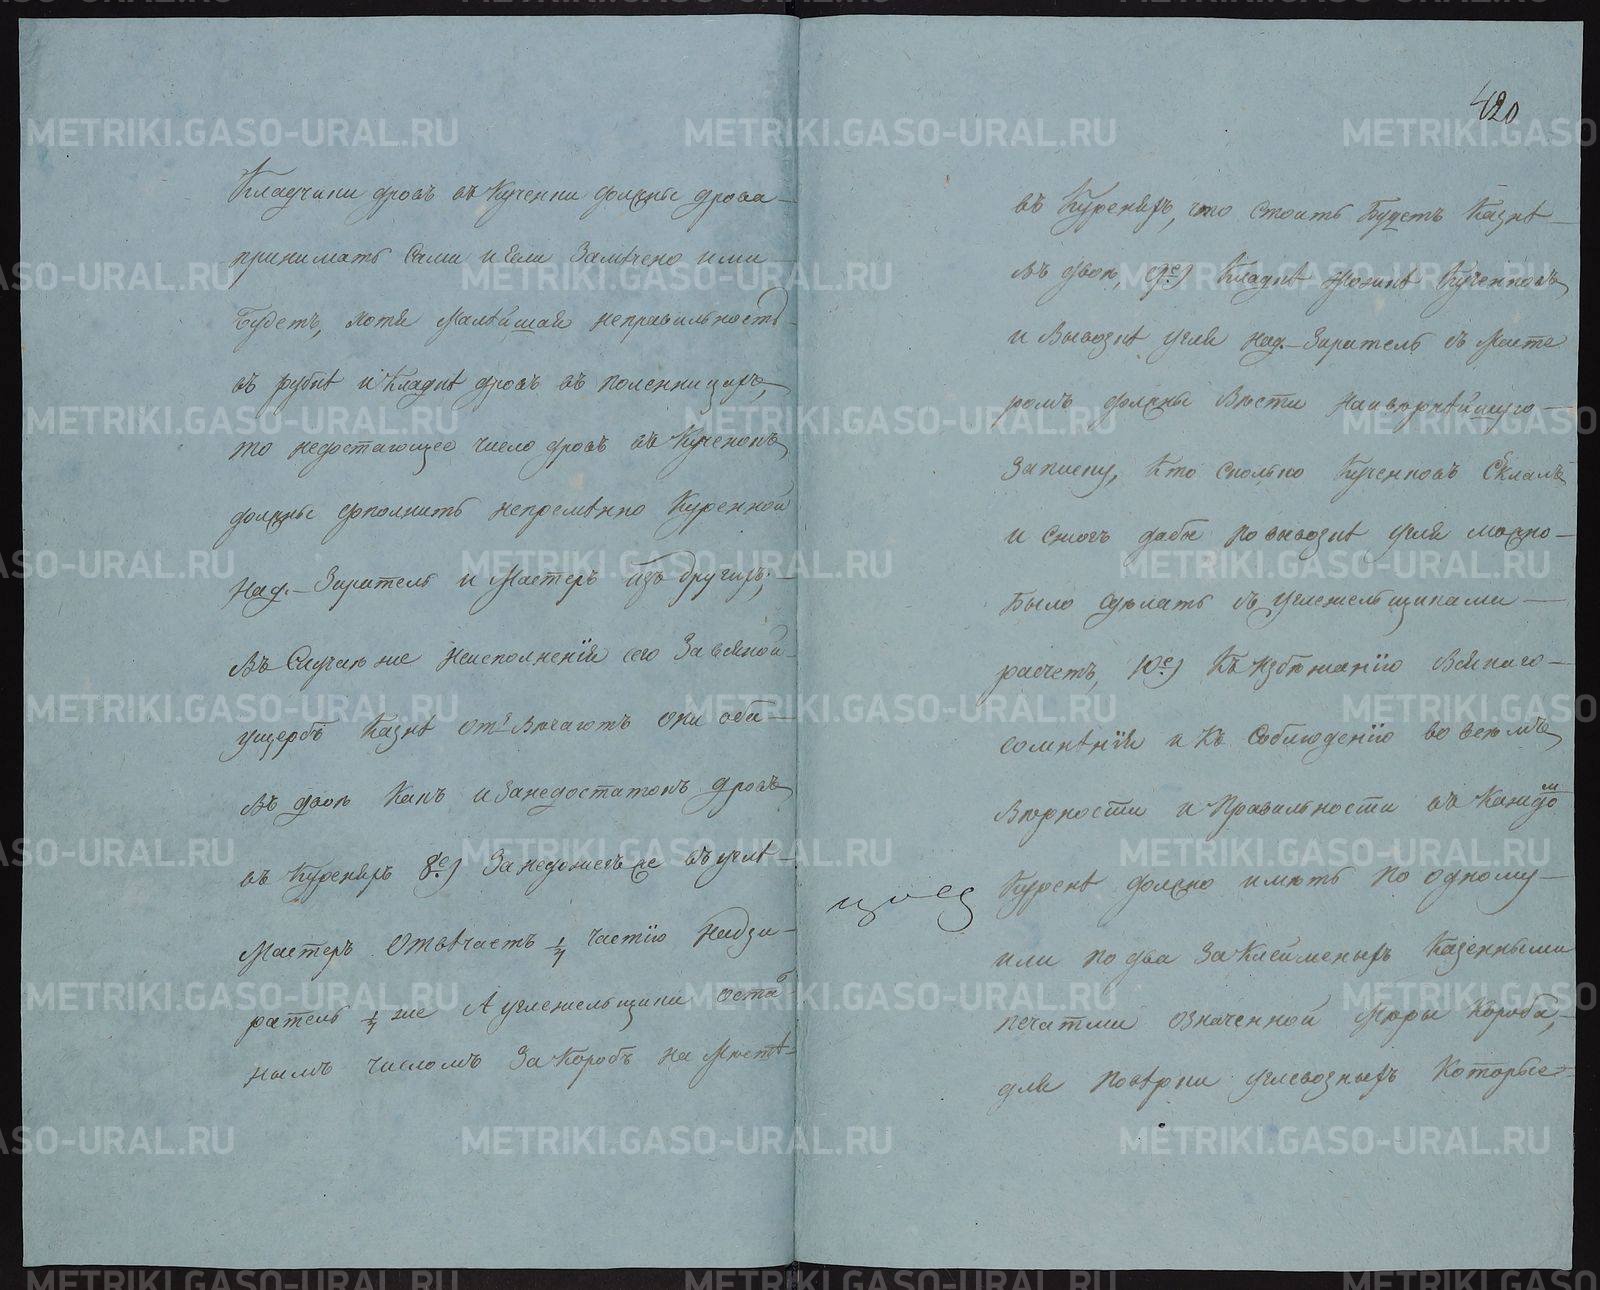 Кладчики дровъ въ Кученки должны дрова
принимать Сами и Ежели Замѣчено ими
Будетъ, хотя Малѣйшая неправильность
въ рубкѣ и Кладкѣ дровъ въ поленницахъ,
то недостающее число дровъ въ Кученокъ
должны дополнить непремѣнно Куренной
Над-Зиратель и Мастеръ изъ другихъ;
Въ Случаѣ же неисполненія сего За всякой
ущербъ Казнѣ отвѣчаютъ они оба
Въ двоѣ Какъ и Занедостатокъ дровъ
въ Куреняхъ 8е) За недожегъ въ углѣ
Мастеръ Отвѣчаетъ 1/4 частію Надзи-
ратель 1/4 же А углежельщики оста-
нымъ числомъ За Коробъ на Мѣстѣ
420
въ Куреняхъ, что стоить Будетъ Казнѣ
Въ двоѣ, 9е) Кладкѣ Кученковъ
и Вывозкѣ угля над-Зиратель съ Масте
ромъ должны Вѣсти наивѣрнѣйшую
Записку, Кто сколько Кученковъ Склалъ
и сжогъ дабы по вывозкѣ угля можно
Было сдѣлать съ углежельщиками
расчетъ, 10е) Къ избѣжанію Всякаго
сомнѣнія и Къ Соблюденію во всемъ
Вѣрности и Правильности въ Каждом
Куренѣ должно имѣть по одному
или по два За Клейменыхъ Казенными
печатми означенной Мѣры Короба,
для повѣрки углевозныхъ Которые
METRIKI.GASO-URAL.RU